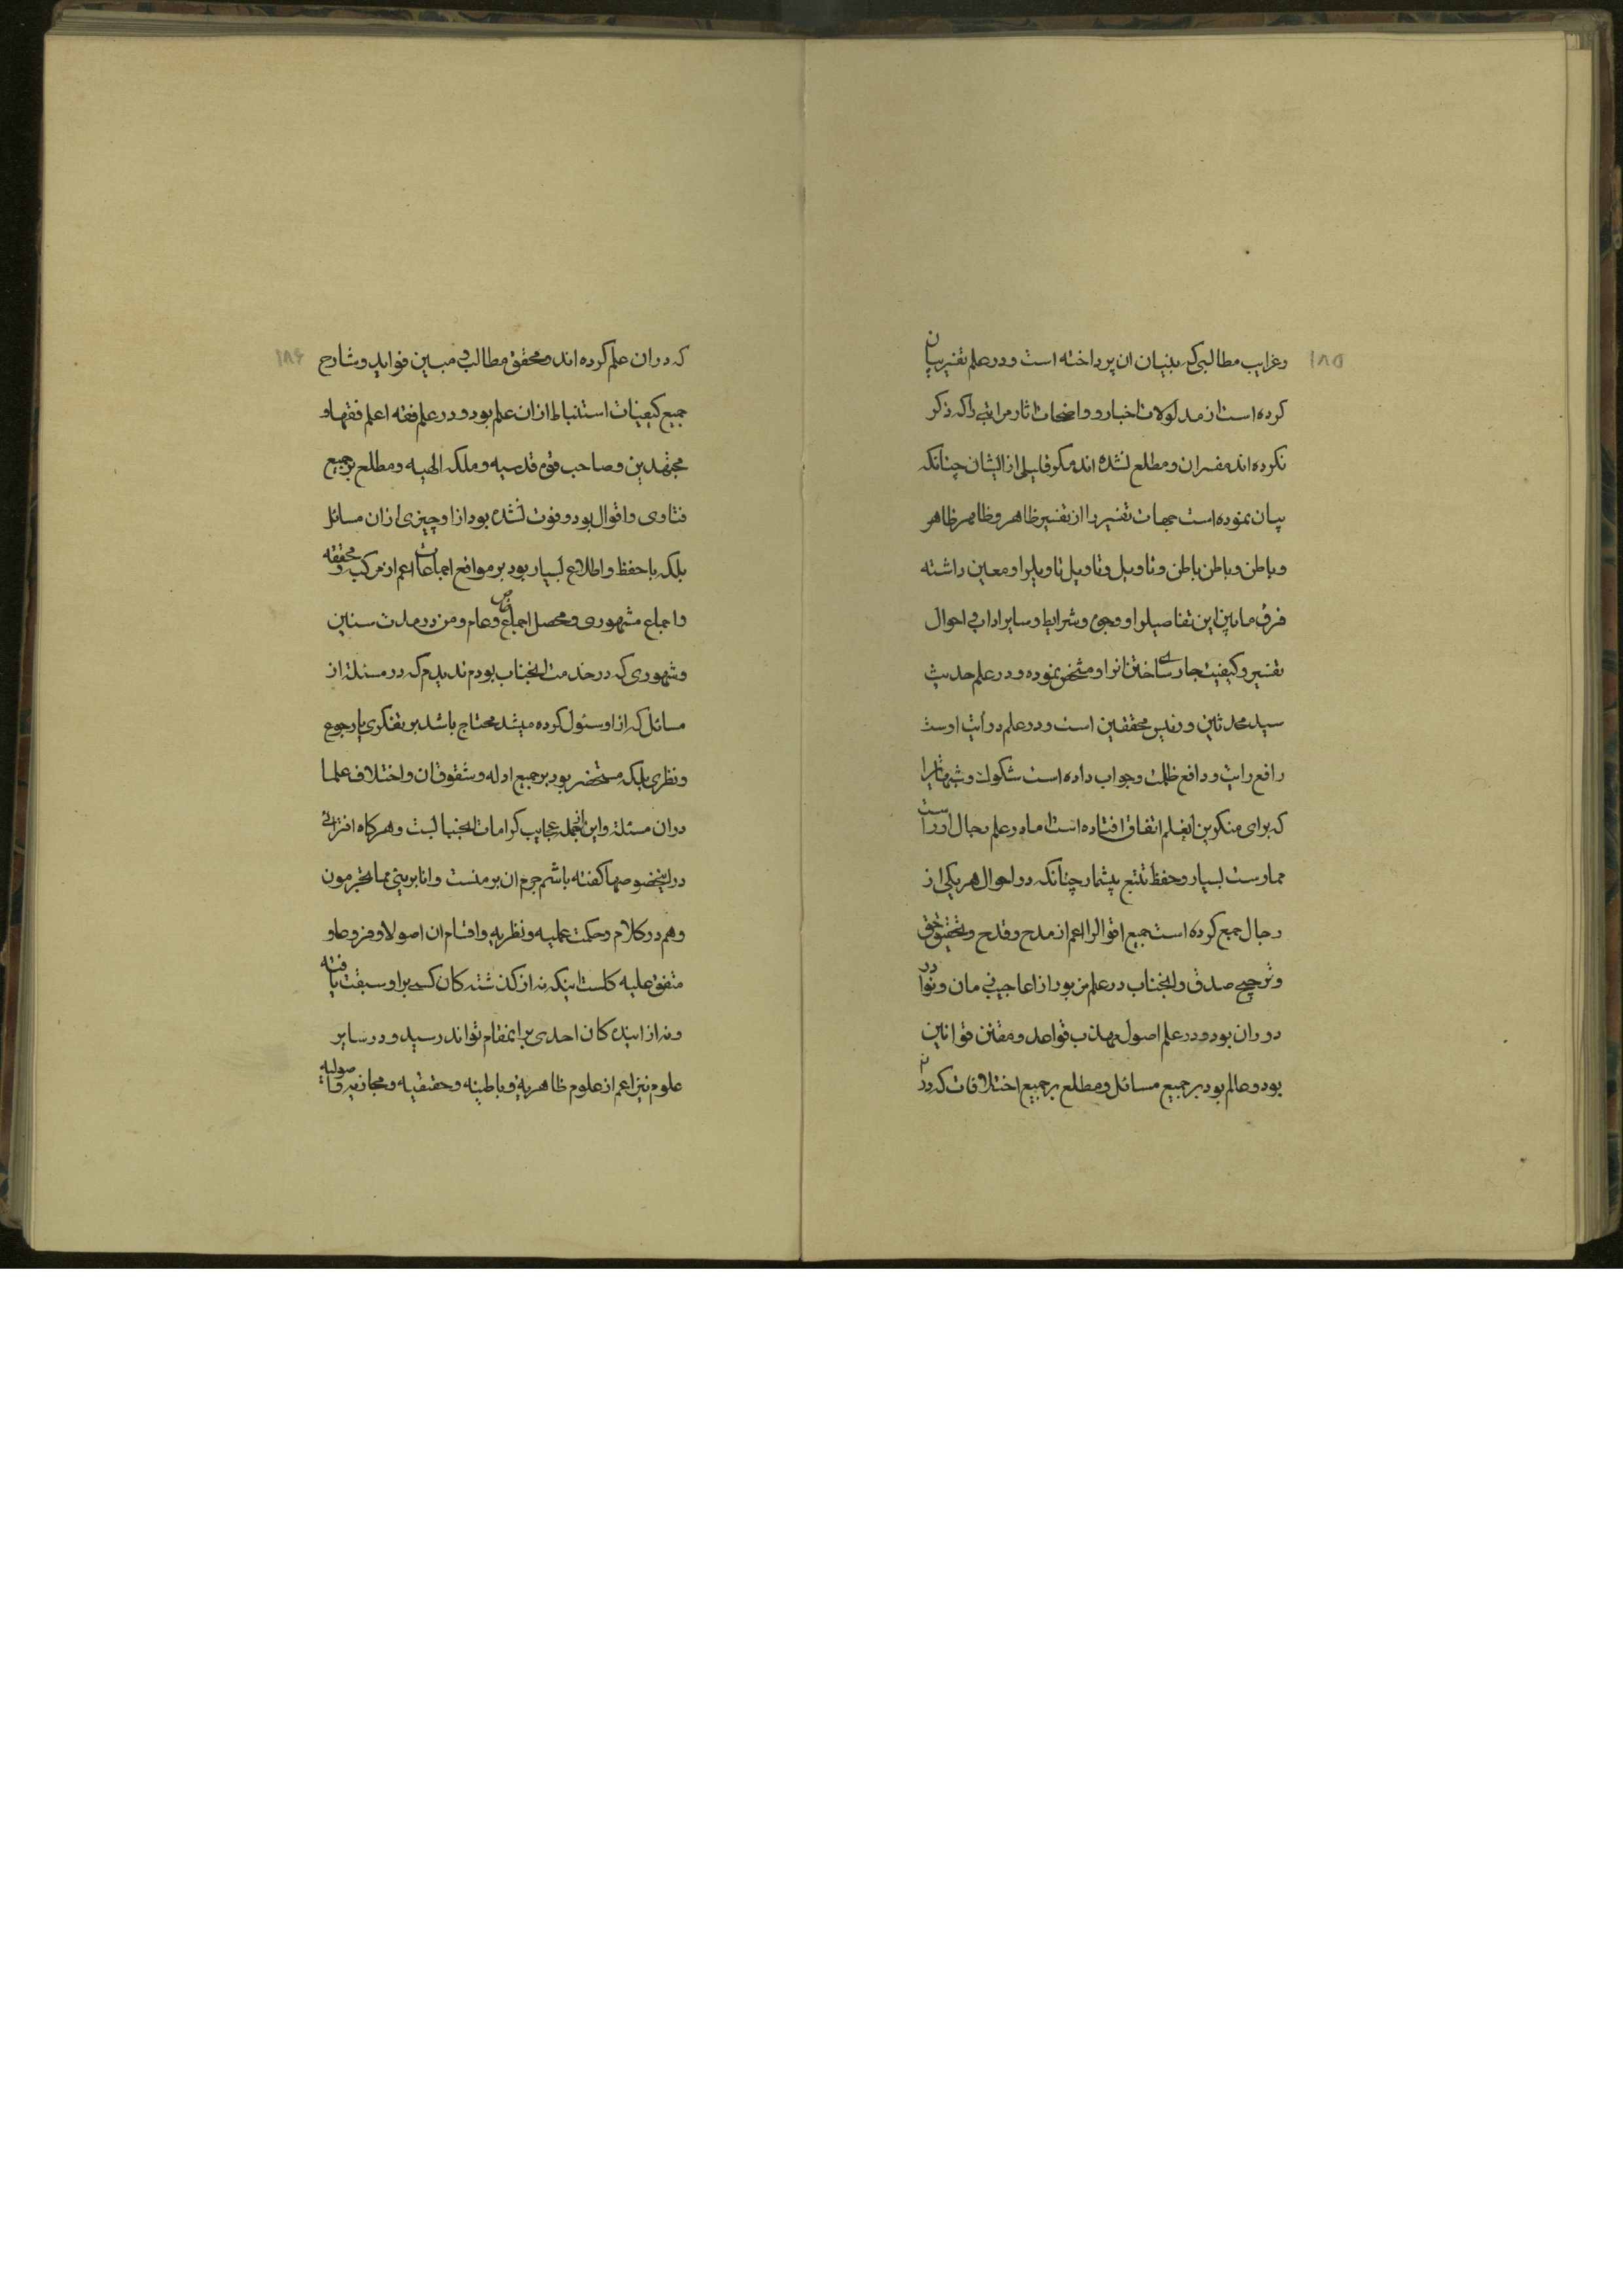 ۱۸۵
وغرایب مطالبی که بتبیان ان پرداخته است ودر علم تفسیر بیان
کرده است از مدلولات اخبار و واضحات اثار مراتبی را که ذکر
نکرده اند مفسران و مطلع نشده اند مکر قلیلی از ایشان چنانکه
بیان نموده است جهات تفسیر را از تفسیر ظاهر و ظاهر ظاهر
و باطن و باطن باطن و تاویل و تاویل تاویل را و معین داشته
فرق مابین این تفاصیل را و وجوه و شرایط و سایر اداب و احوال
تفسیر و کیفیت جاری ساختن انرا و مشخص نموده و در علم حدیث
سید محدثین و رئیس محققین است و در علم درایت اوست
رافع رایت و دافع ظلمت و جواب داده است شکوک و شبهاتی را
که برای منکرین اینعلم اتفاق افتاده است اما در علم رجال اوراست
ممارست بسیار و حفظ و تتبع بیشمار چنانکه در احوال هر یکی از
رجال جمع کرده است جمیع اقوال را اعم از مدح و قدح و تحقیق حق
و ترجیح صدق و انجناب در علم من بود از اعاجیب زمان و نوادر
دوران بود و در علم اصول مهذب قواعد و مقنن قوانین
بود و عالم بود بر جمیع مسائل و مطلع بر جمیع اختلافات که در
۱۸۶
که در ان علم کرده اند و محقق مطالب و مبین فواید و شارح
جمیع کیفیات استنباط از ان علم بود و در علم فقه اعلم فقها و
مجتهدین و صاحب قوه قدسیه و ملکه الهیه و مطلع بر جمیع
فتاوی و اقوال بود و فوت نشده بود از او چیزی از ان مسائل
بلکه با حفظ و اطلاع بسیار بود بر مواقع اجماعات اعم از مرکب و محققه
و اجماع مشهوری و محصل اجماع خاص و عام و من در مدت سنین
و شهوری که در خدمت انجناب بودم ندیدم که در مسئله از
مسائل که از او سئول کرده میشد محتاج باشد بر تفکری یا رجوع
و نظری بلکه مستحضر بود بر جمیع ادله و شقوق ان و اختلاف علما
در ان مسئله و این از جمله عجایب کرامات انجنابست و هر کاه افترائی
در اینخصوصها کفته باشم جرم ان بر منست و انا بریئ مما تجرمون
و هم در کلام و حکمت عملیه و نظریه و اقسام ان اصولا و فروعا و
متفق علیه کلست اینکه نه از کذشته کان کسی بر او سبقت یافته
و نه از اینده کان احدی بر اینمقام تواند رسید و در سایر
علوم نیز اعم از علوم ظاهریه و باطنیه و حقیقیه و مجازیه و اصولیه